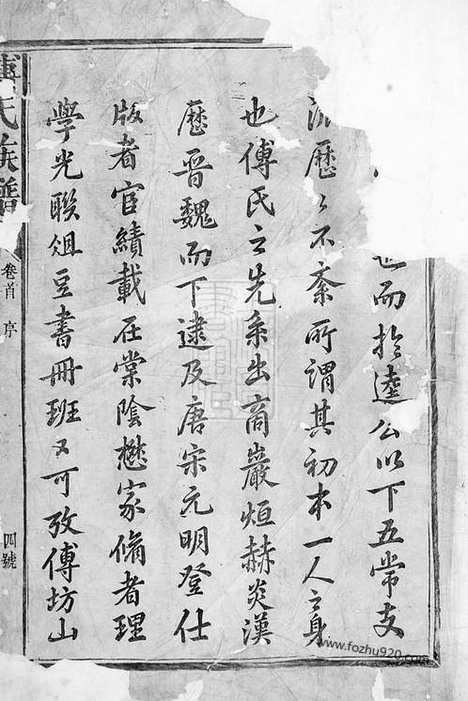 也而於達公以下五常支
流歷歷不紊所謂其初本一人之身
也傅氏之先系出商巖烜赫炎漢
歷晉魏而下逮及唐宋元明登仕
版者宦績載在棠陰懋家脩者理
學光聯俎豆書冊班班可攷傅坊山
傅氏族譜
卷首 序
四號
www.fozhu920.com